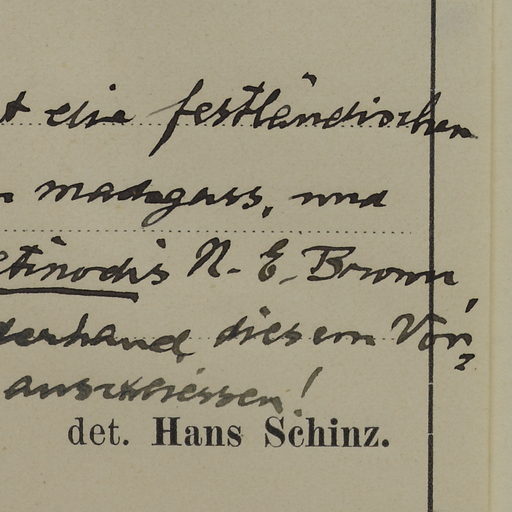 t die festländischen
n madagass, und
etinodis N. E. Brown,
derhand diesem Vor-
anschliessen!
det. Hans Schinz.